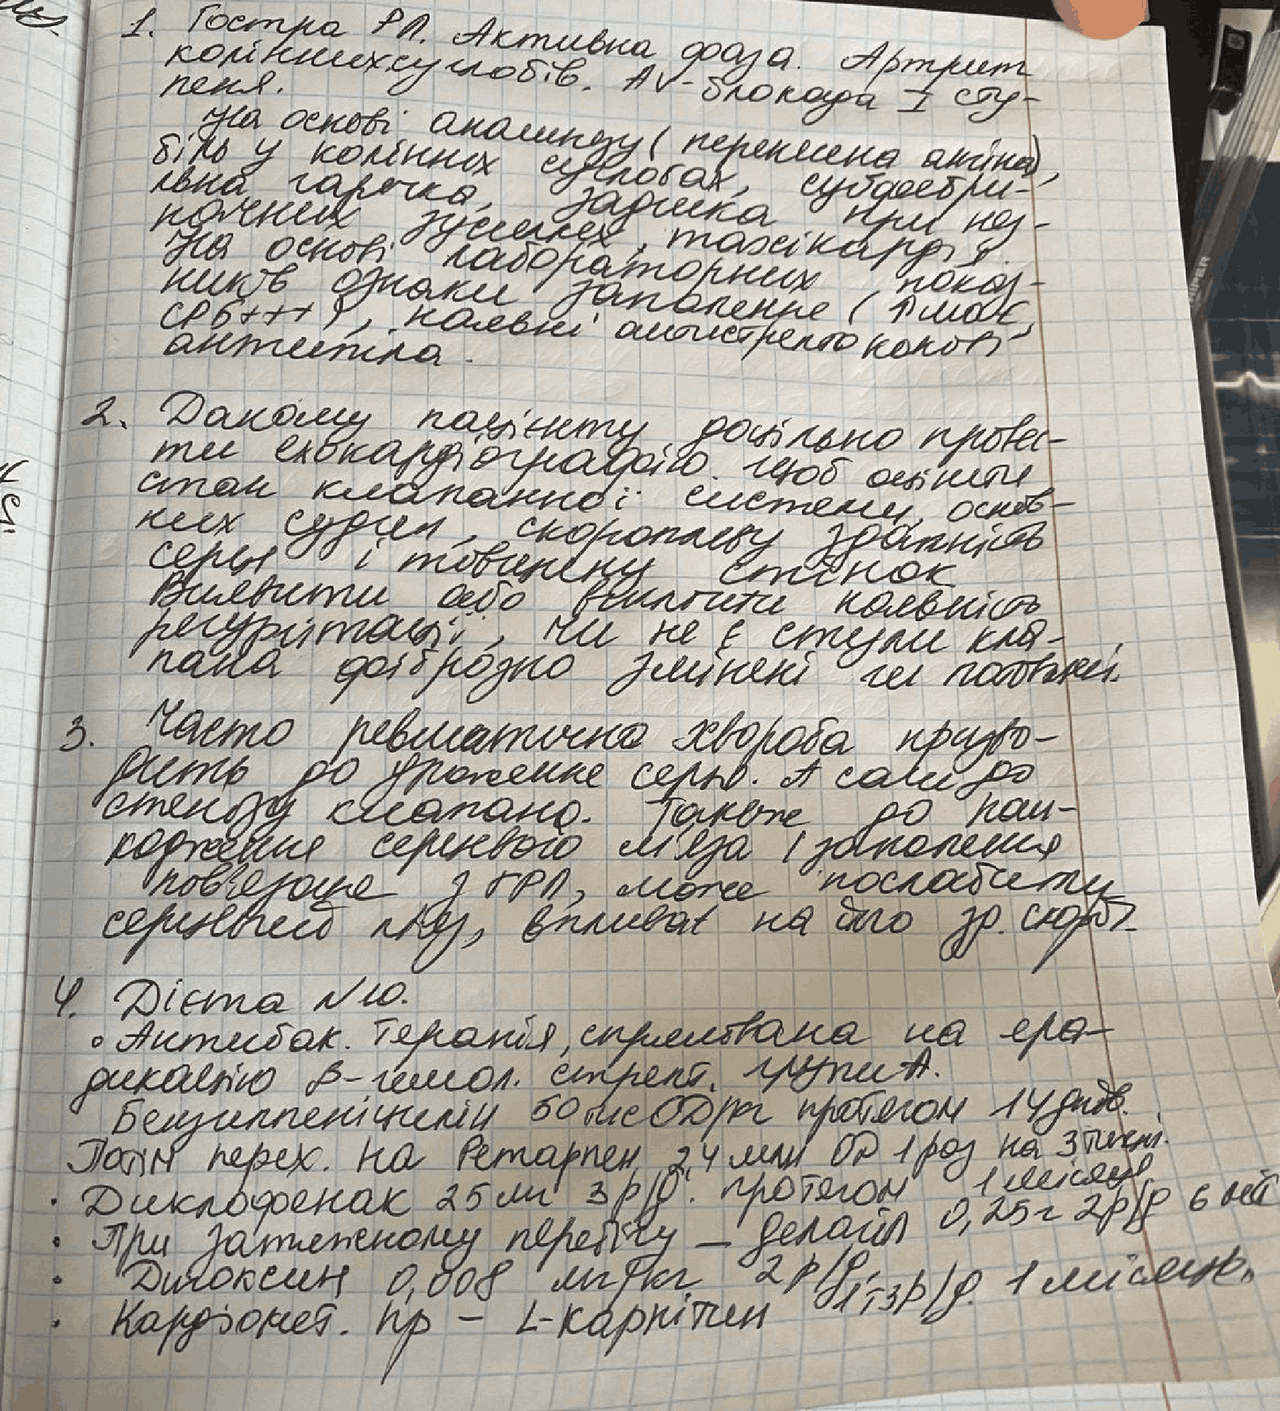 1. Гостра РЛ. Активна фаза. Артрит
колінних суглобів. AV-блокада I сту-
пеня.
На основі анамнезу (перенесена ангіна),
біль у колінних суглобах, субфебри-
льна гарячка, задишка при нез-
начних зусиллях, тахікардія.
На основі лабораторних показ-
ників ознаки запалення (
СРБ+++, наявні антистрептококові
антитіла.
2. Даному пацієнту доцільно провес-
ти ехокардіографію щоб оцінити
стан клапанної системи, основ-
них судин, скоротливу здатність
серця і товщину стінок
Виявити або виключити наявність
регургітації, чи не є стулки кла-
пана фіброзно змінені чи потовщені.
3. Часто ревматична хвороба призво-
дить до ураження серця. А саме до
стенозу клапана. Також до пош-
кодження серцевого м'яза (запалення
пов'язане з ГРЛ, може послабити
серцевий м'яз, впливає на його зд. скороч.
4. Дієта N10.
• Антибак. терапія, спрямована на ера-
дикацію β-гемол. стрепт. групи А.
Бензилпеніцилін 50 тис ОД/кг протягом 14 днів.
Потім перех. на Ретарпен 2,4 млн ОД 1 раз на 3 тижні.
• Диклофенак 25 мг 3 р/д. протягом 1 місяця
• При затяжному перебігу – делагіл 0,25 г 2 р/д 6 міс
• Дигоксин 0,008 мг/кг 2 р/д.
• Кардіомет. пр – L-карнітин 1т 3 р/д. 1 місяць.